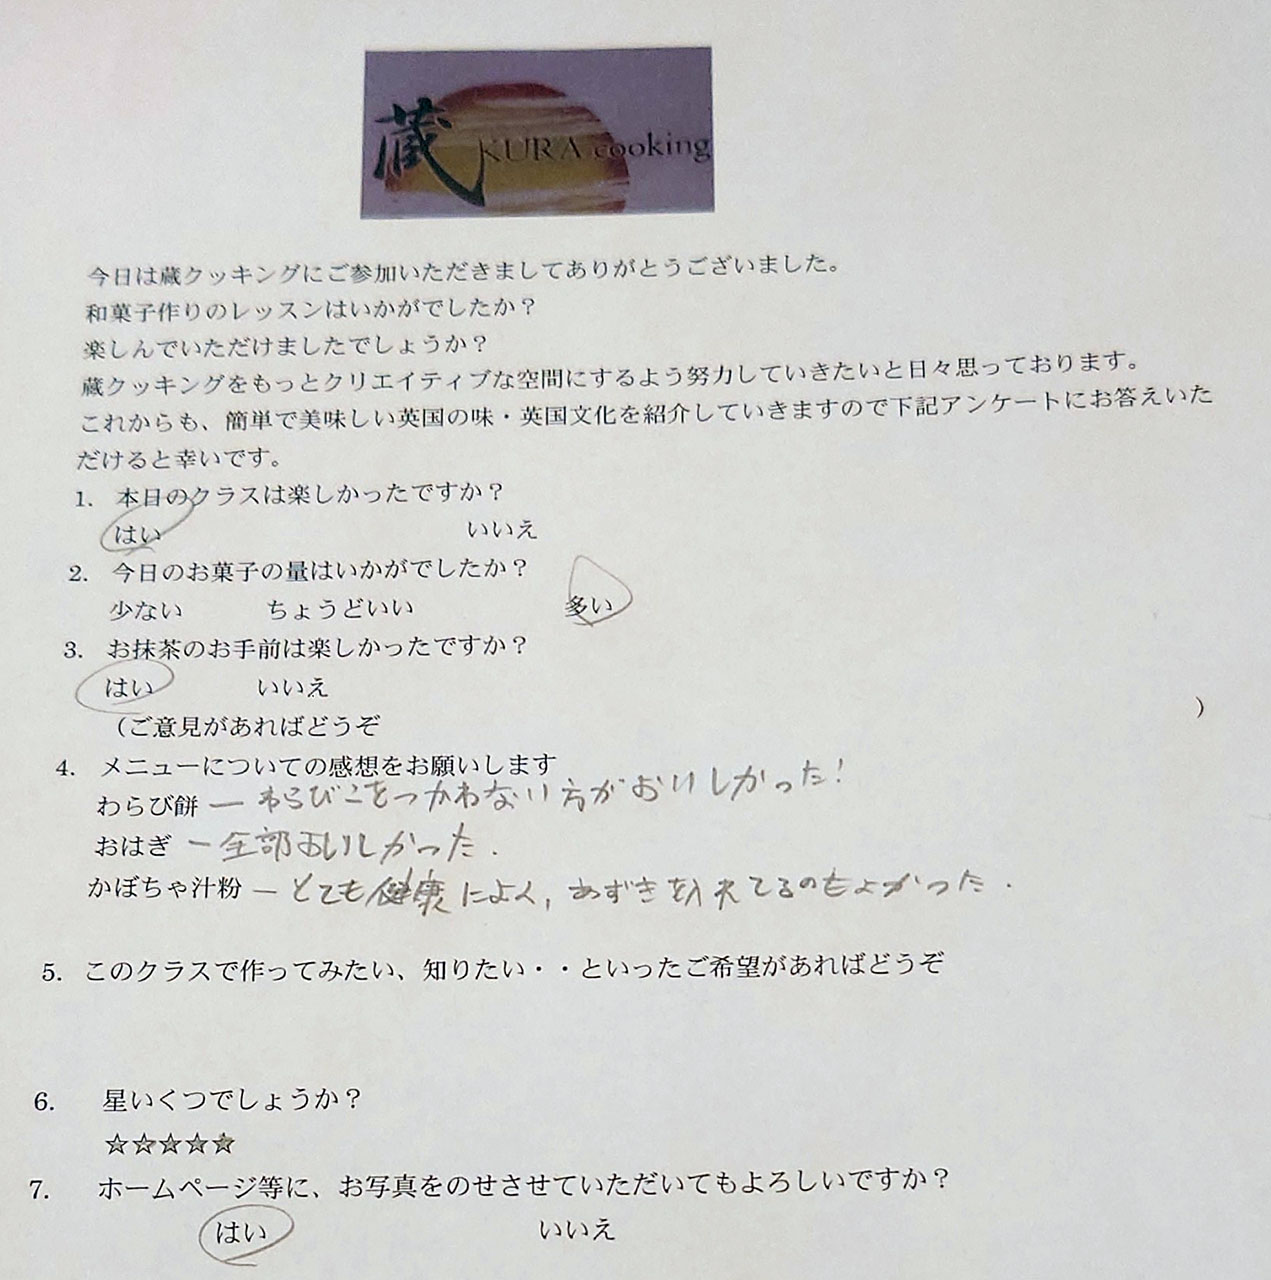 蔵 KURA cooking
今日は蔵クッキングにご参加いただきましてありがとうございました。
和菓子作りのレッスンはいかがでしたか？
楽しんでいただけましたでしょうか？
蔵クッキングをもっとクリエイティブな空間にするよう努力していきたいと日々思っております。
これからも、簡単で美味しい英国の味・英国文化を紹介していきますので下記アンケートにお答えいた
だけると幸いです。
1. 本日のクラスは楽しかったですか？
はい いいえ
2. 今日のお菓子の量はいかがでしたか？
少ない ちょうどいい 多い
3. お抹茶のお手前は楽しかったですか？
はい いいえ
（ご意見があればどうぞ ）
4. メニューについての感想をお願いします
わらび餅 ー わらびこをつかわない方がおいしかった！
おはぎ ー 全部おいしかった.
かぼちゃ汁粉 ー とても健康によく, あずきを入れてるのもよかった.
5. このクラスで作ってみたい、知りたい・・といったご希望があればどうぞ
6. 星いくつでしょうか？
☆☆☆☆☆
7. ホームページ等に、お写真をのせさせていただいてもよろしいですか？
はい いいえ